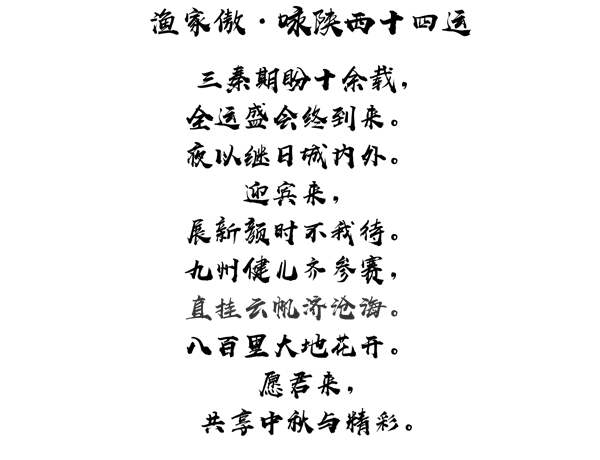 渔家傲·咏陕西十四运
三秦期盼十余载，
全运盛会终到来。
夜以继日城内外。
迎宾来，
展新颜时不我待。
九州健儿齐参赛，
直挂云帆济沧海。
八百里大地花开。
愿君来，
共享中秋与精彩。